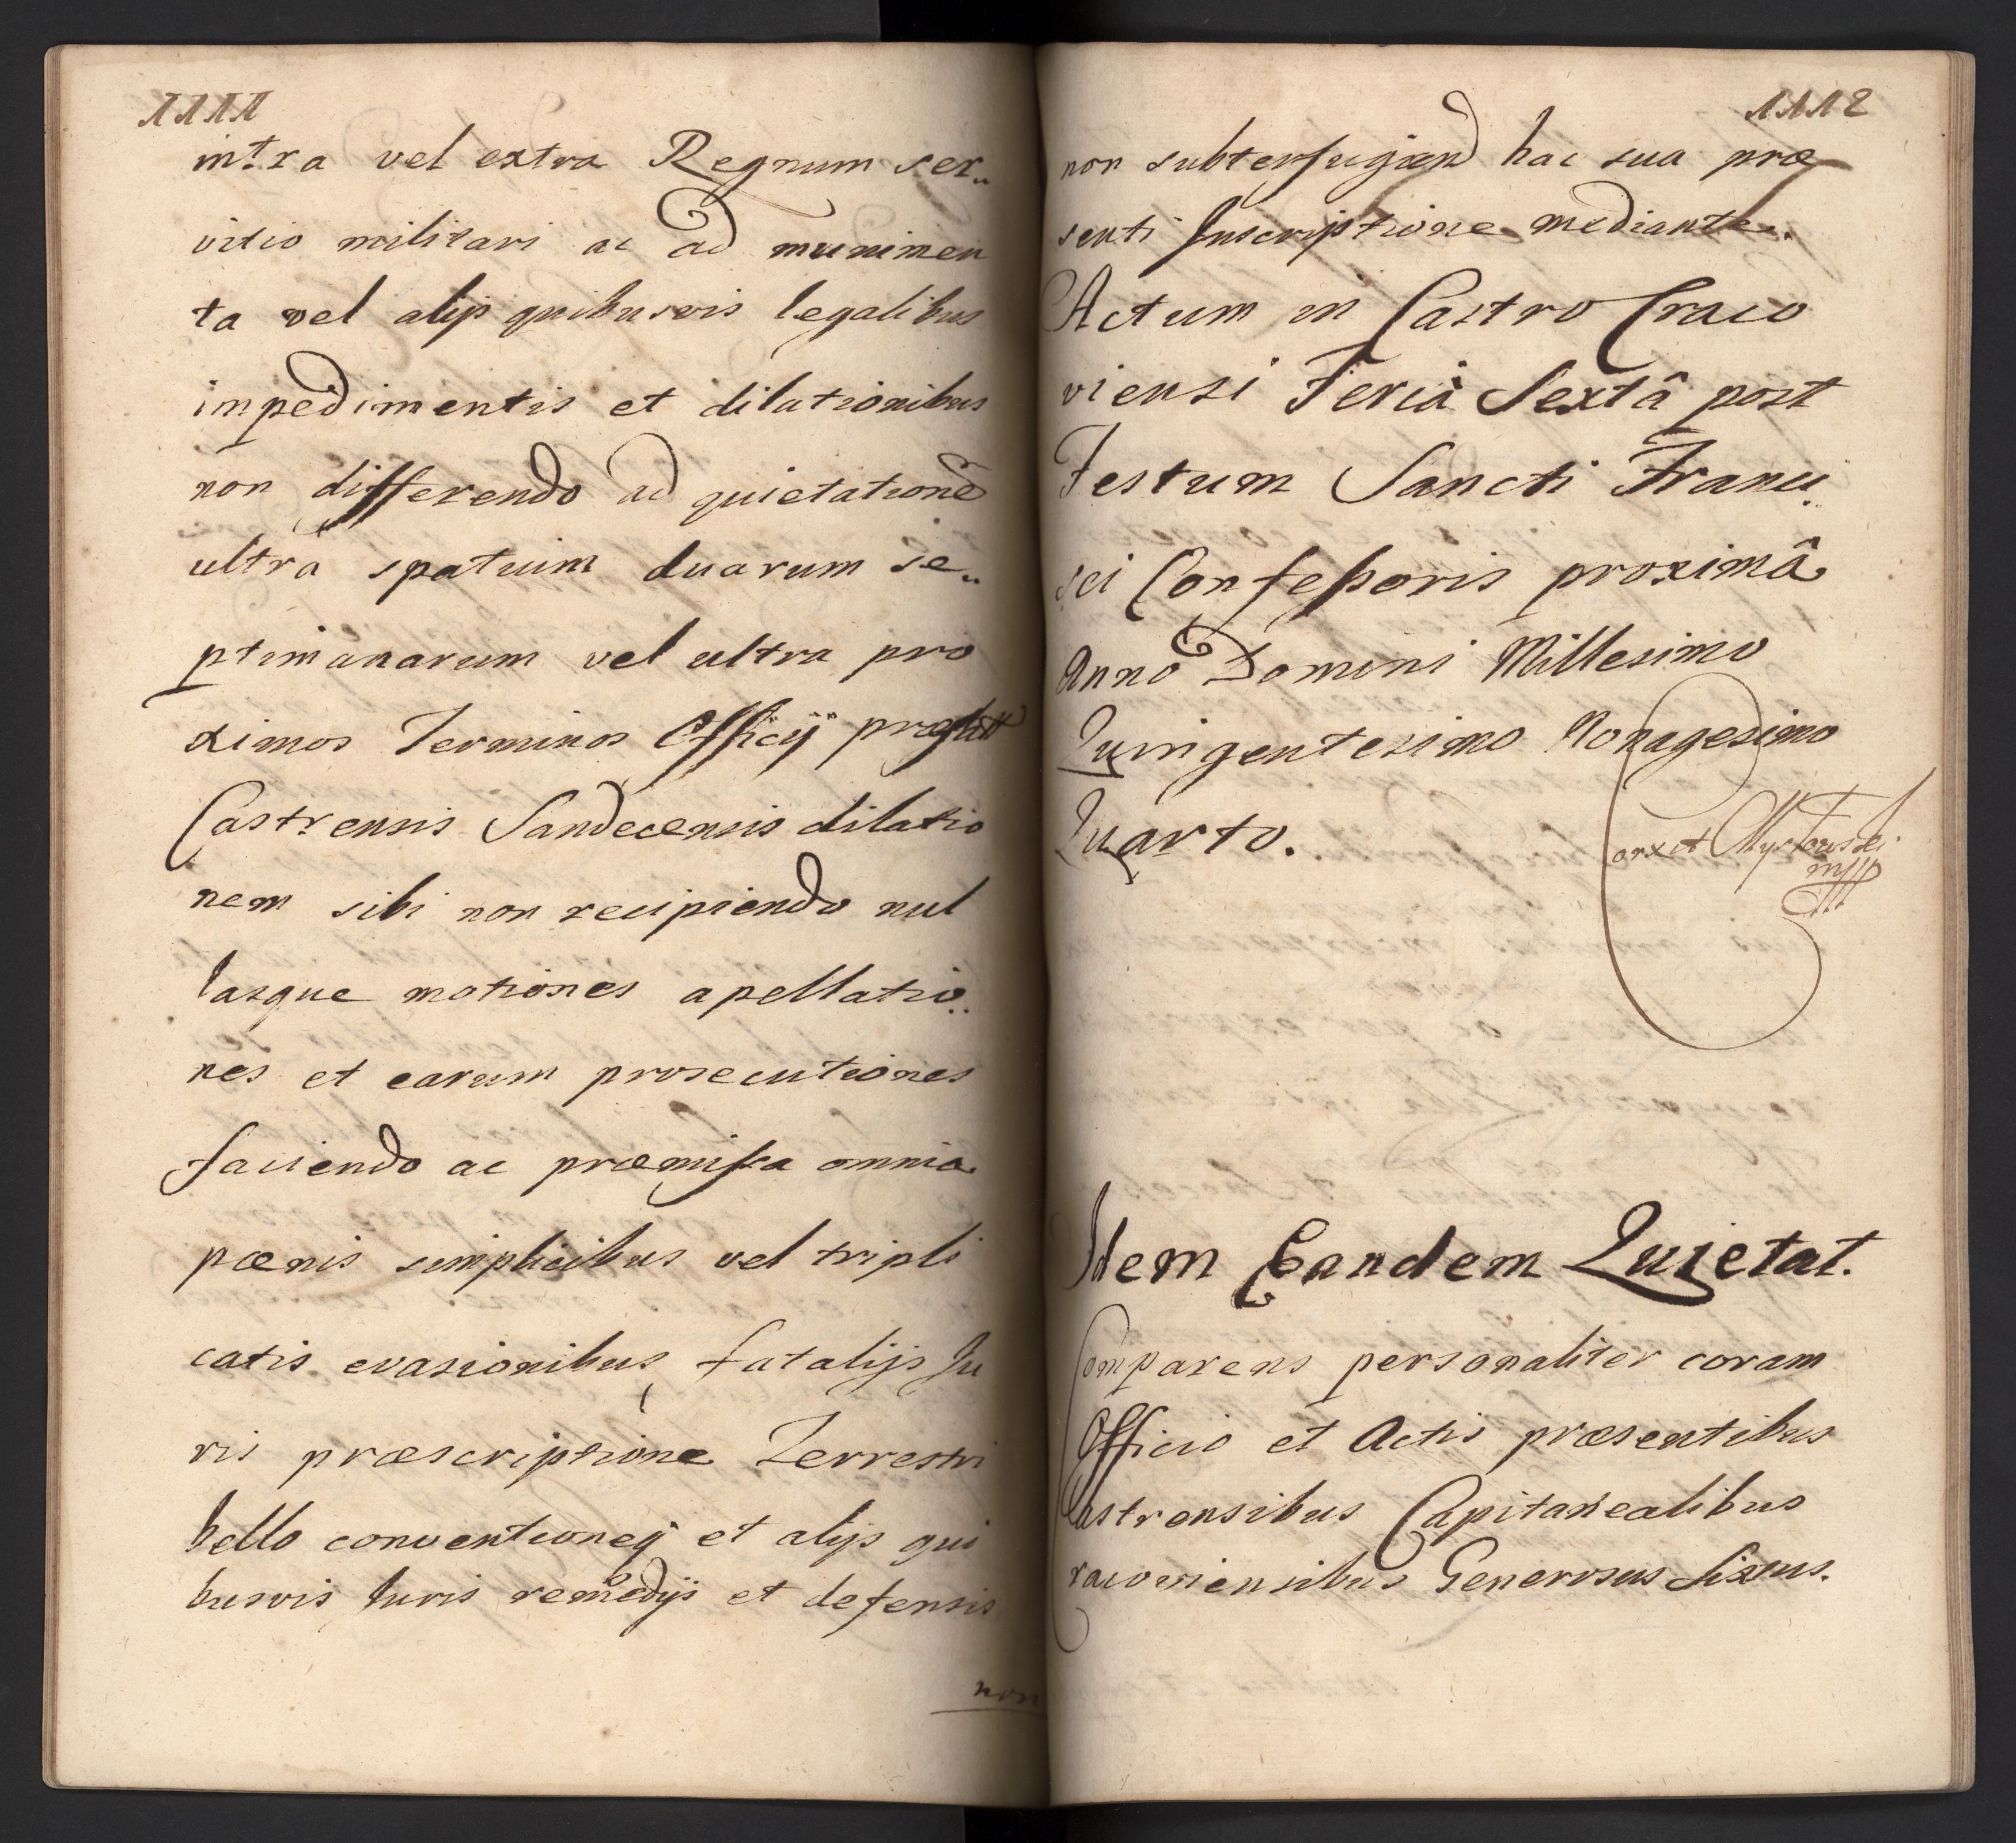 1111
intra vel extra Regnum ser„
vitio militari ac ad munimen
ta vel alijs quibusvis legalibus
impedimentis et dilationibus
non differendo ad quietatione
ultra spatium duarum se„
ptimanarum vel ultra pro
ximos Terminos Officij præfatt
Castrensis Sandecensis dilatio
nem sibi non recipiendo nul
lasque motiones apellatio„
nes et earum prosecutiones
faciendo ac præmissa omnia
pœnis simplicibus vel tripli
catis evasionibus fatalijs Ju
ris præscriptione Terrestri
bello conventioney et alijs qui
busvis Juris remedijs et defensis
non
1112
non subterfugiend hac sua præ
senti Inscriptione mediante.
Actum in Castro Craco
viensi Feriâ Sextâ post
Festum Sancti Franci„
sci Confessoris proximâ
Anno Domini Millesimo
Quingentesimo Nonagesimo
Quarto.
Idem Eandem Quietat.
Comparens personaliter coram
Officio et Actis præsentibus
Castrensibus Capitanealibus
racoviensibus Generosus Sixtus.